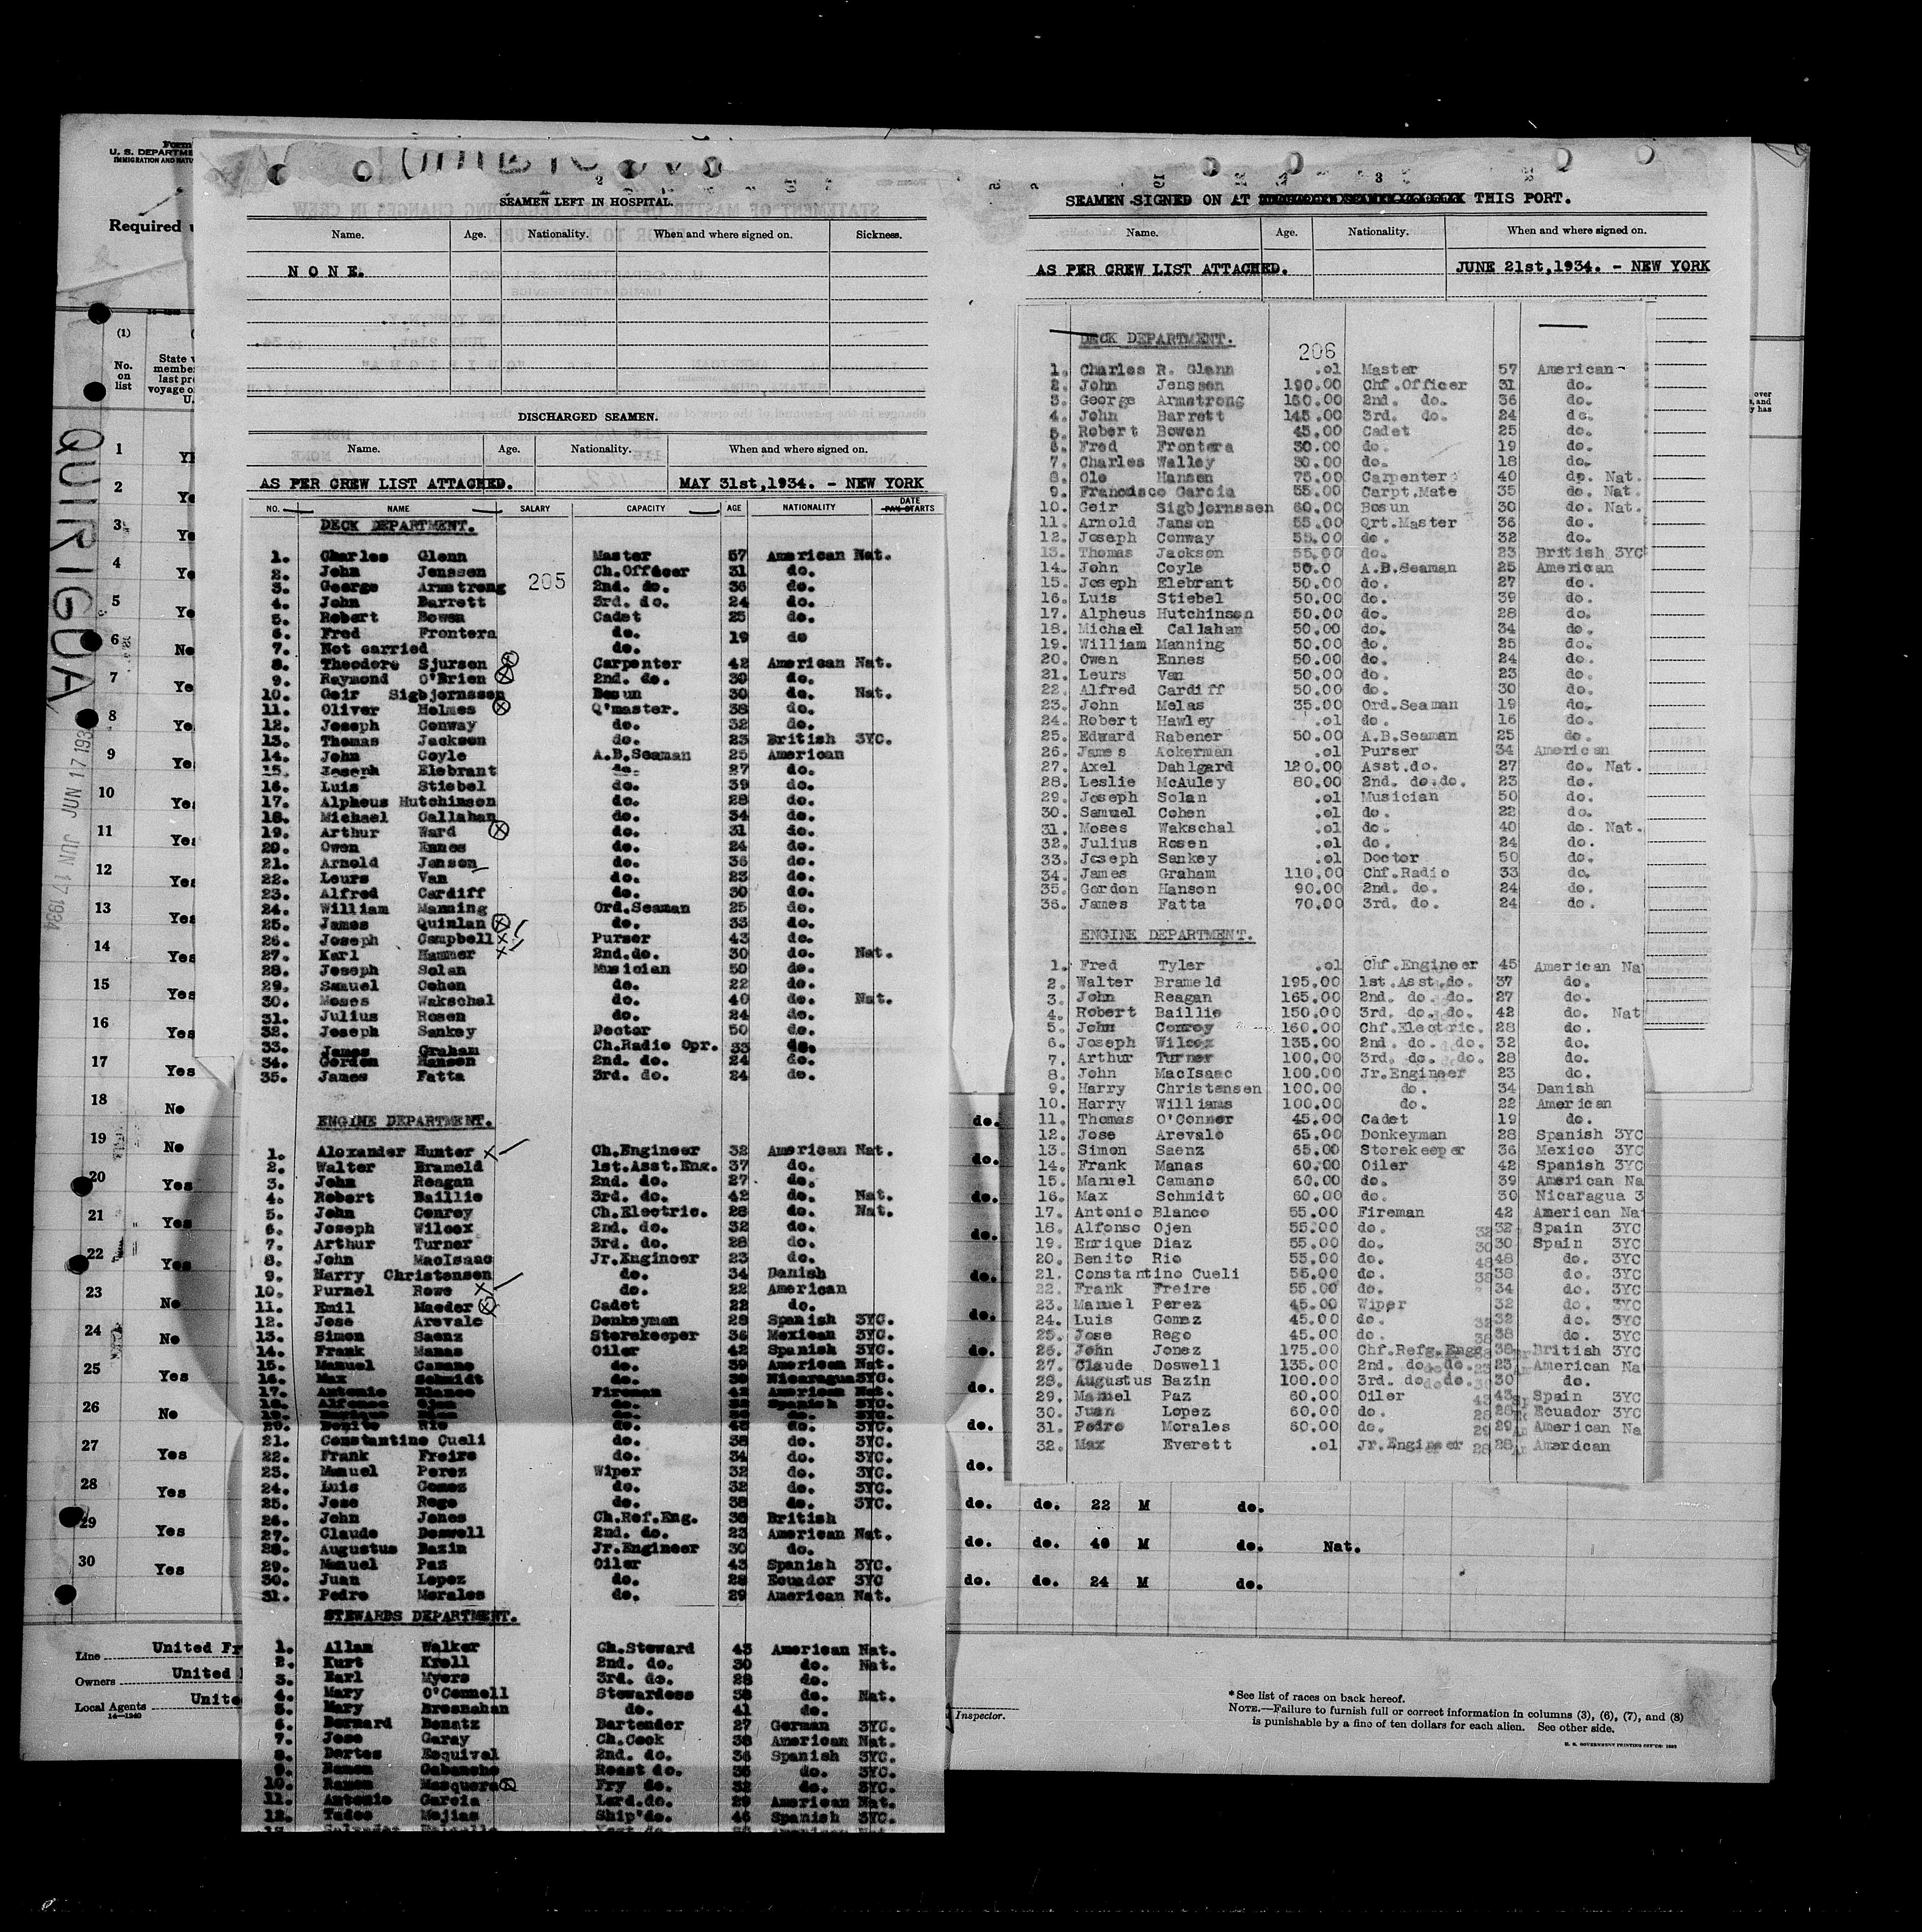 Form
U. S. DEPARTME
IMMIGRATION AND NATU
Required
(1)
No. on list
State
member
last pr
voyage o
U.
QUIRIGUA
JUN 17 193
JUN 17 1934
1
2 Ye
3 Ye
4 Ye
5 Ye
6 No
7 Ye
8 Ye
9 Ye
10 Yes
11 Yes
12 Yes
13 Yes
14 Yes
15 Yes
16 Yes
17 Yes
18 No
19 No
20 Yes
21 Yes
22 Yes
23 No
24 No
25 Yes
26 No
27 Yes
28 Yes
29 Yes
30 Yes
Line United Fr
Owners United
Local Agents Unite
14—1240
2
SEAMEN LEFT IN HOSPITAL.
Name. Age. Nationality. When and where signed on. Sickness.
N O N E.
DISCHARGED SEAMEN.
Name. Age. Nationality. When and where signed on.
AS PER CREW LIST ATTACHED. MAY 31st,1934. - NEW YORK
NO. NAME SALARY CAPACITY AGE NATIONALITY DATE PAY STARTS
DECK DEPARTMENT.
205
1. Charles Glenn Master 57 American Nat.
2. John Jenssen Ch.Officer 31 do.
3. George Armstrong 2nd. do. 36 do.
4. John Barrett 3rd. do. 24 do.
5. Robert Bowen Cadet 25 do.
6. Fred Frontera do. 19 do
7. Not carried do.
8. Theodore Sjursen Carpenter 42 American Nat.
9. Raymond O'Brien 2nd. do. 30 do.
10. Geir Sigbjornssen Bosun 30 do. Nat.
11. Oliver Holmes Q'master. 38 do.
12. Joseph Conway do. 32 do.
13. Thomas Jackson do. 23 British 3YC.
14. John Coyle A.B.Seaman 25 American
15. Joseph Elebrant do. 27 do.
16. Luis Stiebel do. 39 do.
17. Alpheus Hutchinson do. 28 do.
18. Michael Callahan do. 34 do.
19. Arthur Ward do. 31 do.
20. Owen Ennes do. 24 do.
21. Arnold Janson do. 36 do.
22. Leurs Van do. 23 do.
23. Alfred Cardiff do. 30 do.
24. William Manning Ord.Seaman 25 do.
25. James Quinlan do. 33 do.
26. Joseph Campbell Purser 43 do.
27. Karl Hammer 2nd.do. 30 do. Nat.
28. Joseph Solan Musician 50 do.
29. Samuel Cohen do. 22 do.
30. Moses Wakschal do. 40 do. Nat.
31. Julius Rosen do. 24 do.
32. Joseph Sankey Doctor 50 do.
33. James Graham Ch.Radio Opr. 33 do.
34. Gordon Hanson 2nd. do. 24 do.
35. James Fatta 3rd. do. 24 do.
ENGINE DEPARTMENT.
1. Alexander Hunter Ch.Engineer 32 American Nat.
2. Walter Brameld 1st.Asst.Eng. 37 do.
3. John Reagan 2nd. do. 27 do.
4. Robert Baillie 3rd. do. 42 do. Nat.
5. John Conroy Ch.Electric. 28 do. Nat.
6. Joseph Wilcox 2nd. do. 32 do.
7. Arthur Turner 3rd. do. 28 do.
8. John MacIsaac Jr.Engineer 23 do.
9. Harry Christensen do. 34 Danish
10. Purnel Rowe do. 22 American
11. Emil Maeder Cadet 22 do.
12. Jose Arevalo Donkeyman 28 Spanish 3YC.
13. Simon Saenz Storekeeper 36 Mexican 3YC.
14. Frank Manas Oiler 42 Spanish 3YC.
15. Manuel Camano do. 39 American Nat.
16. Max Schmidt do. 30 Nicaragua 3YC.
17. Antonio Blanco Fireman 42 American Nat.
18. Alfonso Ojen do. 32 Spanish 3YC.
19. do. do. 3YC.
20. Benito Rio do. 48 do. 3YC.
21. Constantino Cueli do. 38 do. 3YC.
22. Frank Freire do. 34 do. 3YC.
23. Manuel Perez Wiper 32 do. 3YC.
24. Luis Gomez do. 32 do. 3YC.
25. Jose Rego do. 38 do. 3YC.
26. John Jones Ch.Ref.Eng. 38 British
27. Claude Doswell 2nd. do. 23 American Nat.
28. Augustus Bazin Jr.Engineer 30 do.
29. Manuel Paz Oiler 43 Spanish 3YC.
30. Juan Lopez do. 28 Ecuador 3YC
31. Pedro Morales do. 29 American Nat.
STEWARDS DEPARTMENT.
1. Allan Walker Ch.Steward 43 American Nat.
2. Kurt Kroll 2nd. do. 30 do. Nat.
3. Earl Myers 3rd. do. 28 do.
4. Mary O'Connell Stewardess 38 do. Nat.
5. Mary Bresnahan do. 41 do.
6. Bernard Benatz Bartender 27 German 3YC.
7. Jose Garay Ch.Cook 38 American Nat.
8. Dortes Esquivel 2nd. do. 36 Spanish 3YC.
9. Ramon Cabanche Roast do. 35 do. 3YC.
10. Ramon Mosquera Fry do. 32 do. 3YC.
11. Antonio Garcia Lard.do. 29 American Nat.
12. Tadeo Mejias Ship'do. 46 Spanish 3YC.
3
SEAMEN SIGNED ON AT THIS PORT.
Name. Age. Nationality. When and where signed on.
AS PER CREW LIST ATTACHED. JUNE 21st,1934. - NEW YORK
DECK DEPARTMENT.
206
1. Charles R. Glenn .01 Master 57 American
2. John Jenssen 190.00 Chf.Officer 31 do.
3. George Armstrong 160.00 2nd. do. 36 do.
4. John Barrett 145.00 3rd. do. 24 do.
5. Robert Bowen 45.00 Cadet 25 do.
6. Fred Frontera 30.00 do. 19 do.
7. Charles Walley 30.00 do. 18 do.
8. Ole Hansen 75.00 Carpenter 40 do. Nat.
9. Francisco Garcia 55.00 Carpt.Mate 35 do. Nat.
10. Geir Sigbjornssen 60.00 Bosun 30 do. Nat.
11. Arnold Janson 55.00 Qrt.Master 36 do.
12. Joseph Conway 55.00 do. 32 do.
13. Thomas Jackson 55.00 do. 23 British 3YC
14. John Coyle 50.0 A.B.Seaman 25 American
15. Joseph Elebrant 50.00 do. 27 do.
16. Luis Stiebel 50.00 do. 39 do.
17. Alpheus Hutchinson 50.00 do. 28 do.
18. Michael Callahan 50.00 do. 34 do.
19. William Manning 50.00 do. 25 do.
20. Owen Ennes 50.00 do. 24 do.
21. Leurs Van 50.00 do. 23 do.
22. Alfred Cardiff 50.00 do. 30 do.
23. John Melas 35.00 Ord.Seaman 19 do.
24. Robert Hawley .01 do. 16 do.
25. Edward Rabener 50.00 A.B.Seaman 25 do.
26. James Ackerman .01 Purser 34 American
27. Axel Dahlgard 120.00 Asst.do. 27 do. Nat.
28. Leslie McAuley 80.00 2nd. do.do. 23 do.
29. Joseph Solan .01 Musician 50 do.
30. Samuel Cohen .01 do. 22 do.
31. Moses Wakschal .01 do. 40 do. Nat.
32. Julius Rosen .01 do. 24 do.
33. Joseph Sankey .01 Doctor 50 do.
34. James Graham 110.00 Chf.Radio 33 do.
35. Gordon Hanson 90.00 2nd. do. 24 do.
36. James Fatta 70.00 3rd. do. 24 do.
ENGINE DEPARTMENT.
1. Fred Tyler .01 Chf.Engineer 45 American Na
2. Walter Brameld 195.00 1st.Asst.do. 37 do.
3. John Reagan 165.00 2nd. do. do. 27 do.
4. Robert Baillie 150.00 3rd. do. do. 42 do. Nat
5. John Conroy 160.00 Chf.Electric. 28 do.
6. Joseph Wilcox 135.00 2nd. do. do. 32 do.
7. Arthur Turner 100.00 3rd. do. do. 28 do.
8. John MacIsaac 100.00 Jr.Engineer 23 do.
9. Harry Christensen 100.00 do. 34 Danish
10. Harry Williams 100.00 do. 22 American
11. Thomas O'Conner 45.00 Cadet 19 do.
12. Jose Arevalo 65.00 Donkeyman 28 Spanish 3YC
13. Simon Saenz 65.00 Storekeeper 36 Mexico 3YC
14. Frank Manas 60.00 Oiler 42 Spanish 3YC
15. Manuel Camano 60.00 do. 39 American Na
16. Max Schmidt 60.00 do. 30 Nicaragua 3
17. Antonio Blanco 55.00 Fireman 42 American Na
18. Alfonso Ojen 55.00 do. 32 Spain 3YC
19. Enrique Diaz 55.00 do. 30 Spain 3YC
20. Benito Rio 55.00 do. 48 do. 3YC
21. Constantino Cueli 55.00 do. 38 do. 3YC
22. Frank Freire 55.00 do. 34 do. 3YC
23. Manuel Perez 45.00 Wiper 32 do. 3YC
24. Luis Gomez 45.00 do. 32 do. 3YC
25. Jose Rego 45.00 do. 38 do. 3YC
26. John Jonez 175.00 Chf.Refg.Engg 38 British 3YC
27. Claude Doswell 135.00 2nd. do. do. 23 American Na
28. Augustus Bazin 100.00 3rd. do. do. 30 do.
29. Manuel Paz 60.00 Oiler 43 Spain 3YC
30. Juan Lopez 60.00 do. 28 Ecuador 3YC
31. Pedro Morales 60.00 do. 29 American Na
32. Max Everett .01 Jr.Engineer 28 American
over
, and
y has
do.
do.
do.
do.
do.
do.
do.
do.
do.
do.
do. do. 22 M do.
do. do. 40 M do. Nat.
do. do. 24 M do.
Inspector.
* See list of races on back hereof.
NOTE.—Failure to furnish full or correct information in columns (3), (6), (7), and (8)
is punishable by a fine of ten dollars for each alien. See other side.
U. S. GOVERNMENT PRINTING OFFICE: 1932